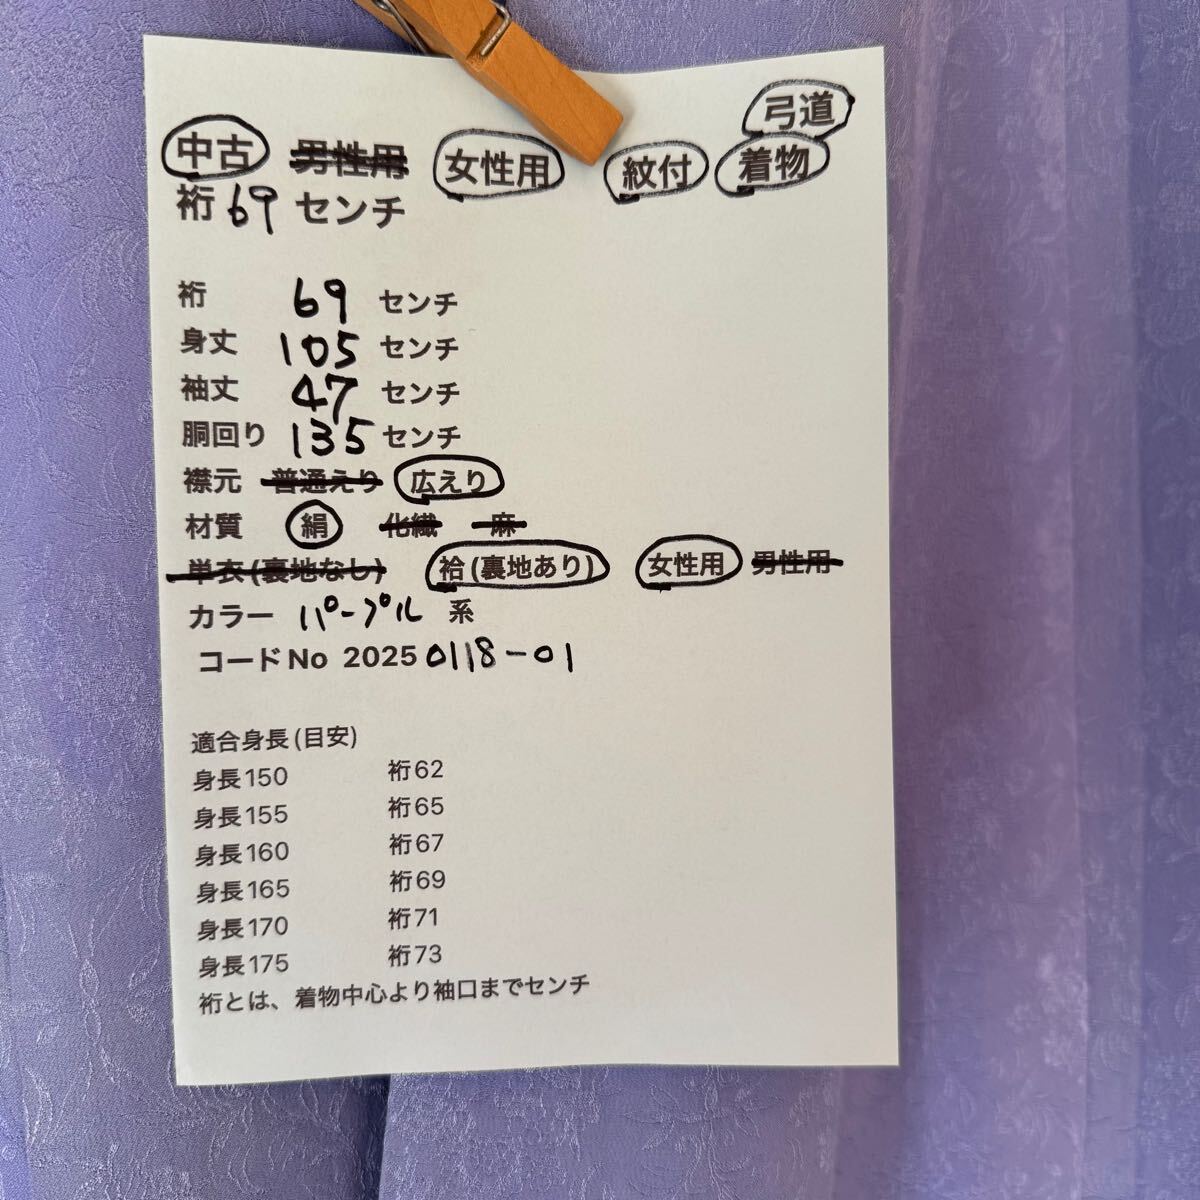 弓道
中古 男性用 女性用 紋付 着物
裄 69 センチ
裄 69 センチ
身丈 105 センチ
袖丈 47 センチ
胴回り 135 センチ
襟元 普通えり 広えり
材質 絹 化繊 麻
単衣(裏地なし) 袷(裏地あり) 女性用 男性用
カラー パープル 系
コードNo 20250118-01
適合身長(目安)
身長150 裄62
身長155 裄65
身長160 裄67
身長165 裄69
身長170 裄71
身長175 裄73
裄とは、着物中心より袖口までセンチ